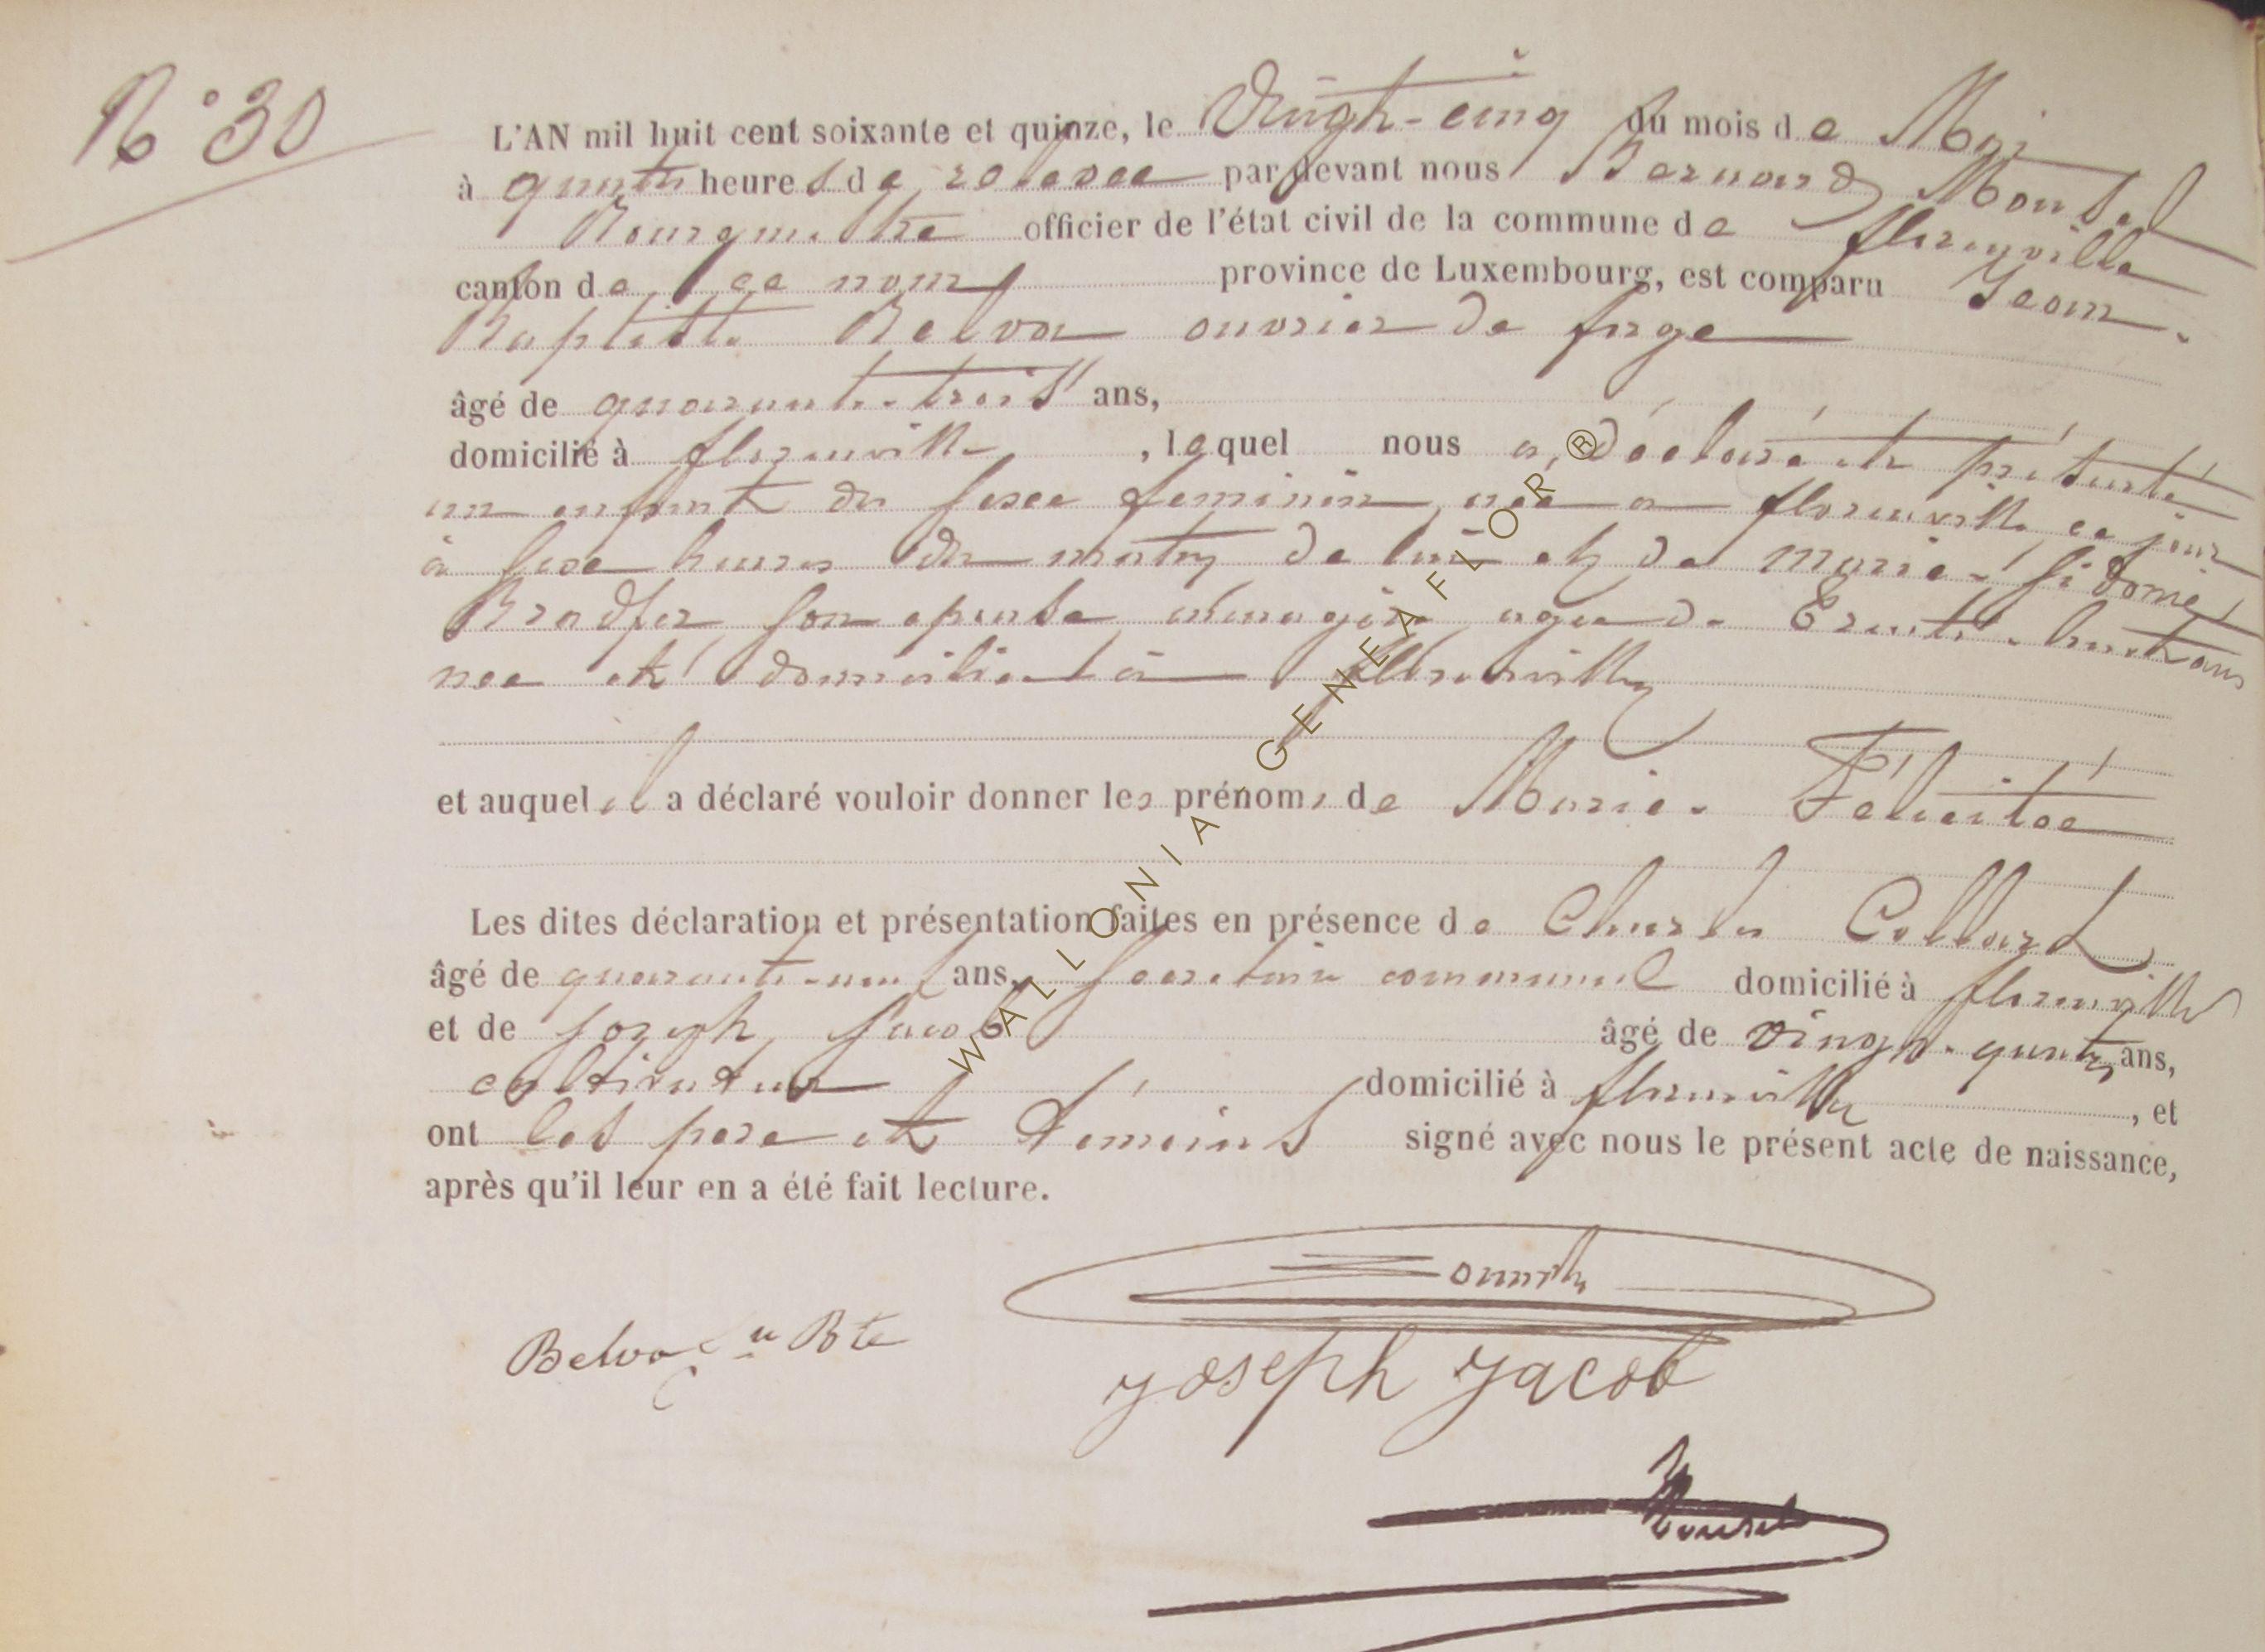 N° 30
L'AN mil huit cent soixante et quinze, le Vingt-cinq du mois de Mai
à quatre heures de relevée par devant nous Bernard
Bourgmestre officier de l'état civil de la commune de florenville
canton de ce nom province de Luxembourg, est comparu Jean-
Baptiste Belva ouvrier de forge
âgé de quarante-trois ans,
domicilié à florenville, lequel nous a, déclaré et présenté
un enfant du sexe féminin, née a florenville, ce jour
à seize heures du matin de lui et de Marie-Sidonie
Bradfer son epouse ménagère agée de Trente-huit ans
née et domiciliée à florenville
et auquel il a déclaré vouloir donner les prénoms de Marie-Félicitée
Les dites déclaration et présentation faites en présence de Charles Collard
âgé de quarante-neuf ans, secretaire communal domicilié à florenville
et de Joseph Jacob âgé de vingt-quatre ans,
cultivateur domicilié à florenville, et
ont les pere et témoins signé avec nous le présent acte de naissance,
après qu'il leur en a été fait lecture.
Belva Jn Bte
Joseph Jacob
WALLONIA GENEAFLOR®